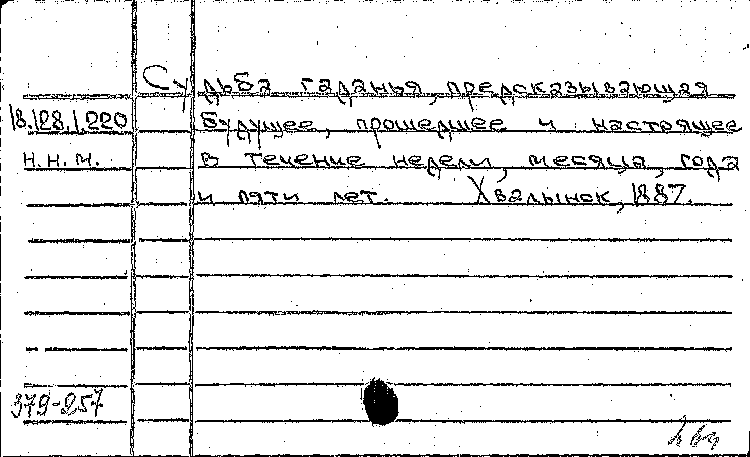 Судьба гаданья, предсказывающая
18.128.1.220 будущее, прошедшее и настоящее
Н.Н.М. в течение недели, месяца, года
и пяти лет. Хвалынск, 1887.
379-257